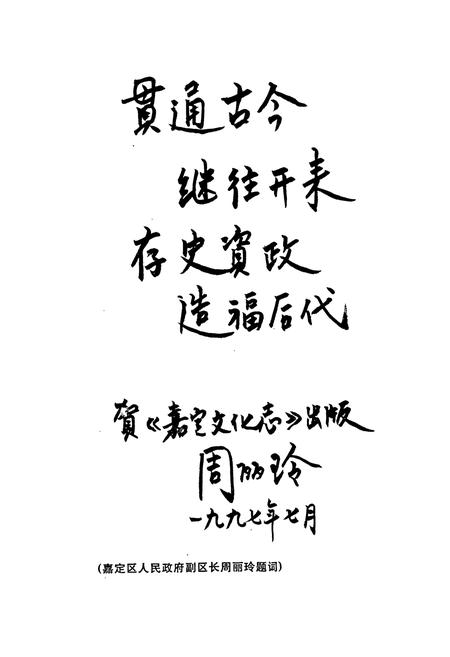 贯通古今
继往开来
存史資政
造福后代
贺《嘉定文化志》出版
周丽玲
一九九七年七月
(嘉定区人民政府副区长周丽玲题词)